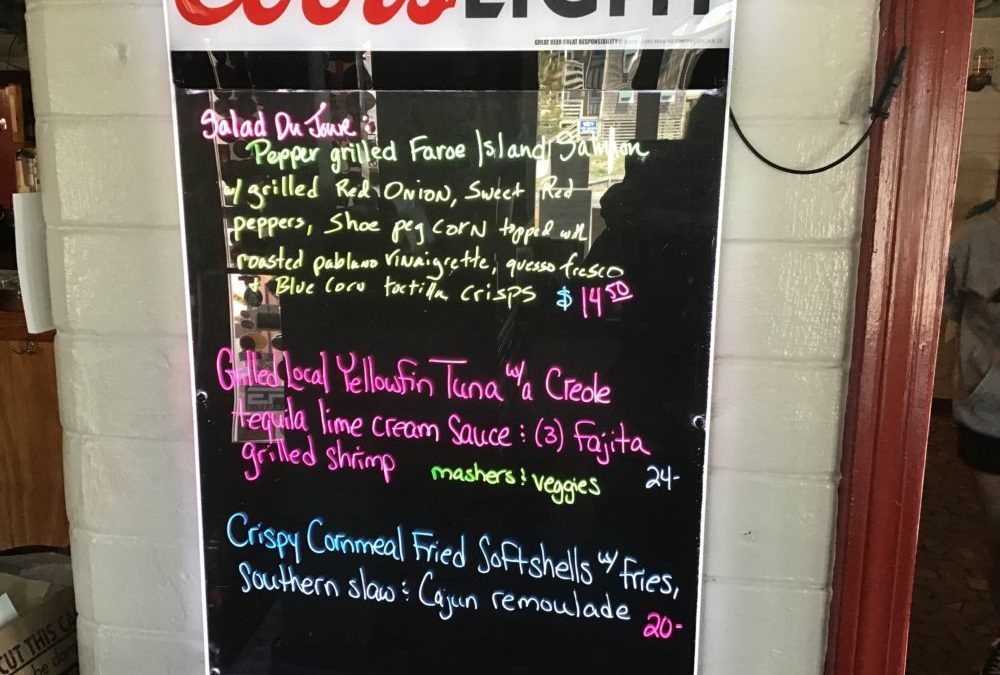 Coors LIGHT
GREAT BEER GREAT RESPONSIBILITY
Salad Du Joure :
Pepper grilled Faroe Island Salmon
w/ grilled Red Onion, Sweet Red
peppers, Shoe peg corn topped with
roasted pablano vinaigrette, quesso fresco
+ Blue Corn tortilla crisps $ 14 50
Grilled Local Yellowfin Tuna w/ a Creole
tequila lime cream Sauce : (3) Fajita
grilled shrimp mashers & veggies 24-
Crispy Cornmeal Fried Softshells w/ fries,
Southern slaw & Cajun remoulade 20-
CUT THIS
be